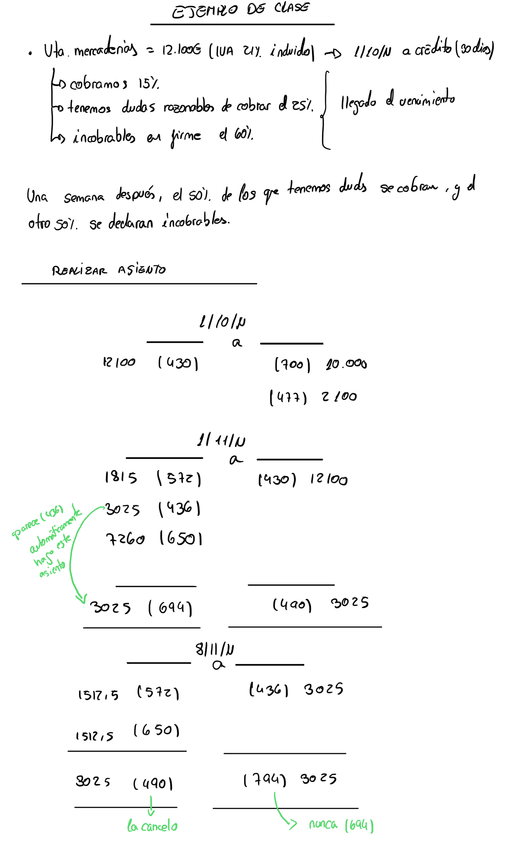 EJEMPLO DE CLASE
• Vta. mercaderías = 12.100€ (IVA 21% incluido) → 1/10/N a crédito (30 días)
↳ cobramos 15%.
↳ tenemos dudas razonables de cobrar el 25%.
↳ incobrables en firme el 60%.
llegado el vencimiento
Una semana después, el 50% de los que tenemos duds se cobran, y el
otro 50% se declaran incobrables.
REALIZAR ASIENTO
1/10/N
a
12100 (430) (700) 10.000
(477) 2100
1/11/N
a
1815 (572) (430) 12100
3025 (436)
7260 (650)
aparece (436)
automáticamente
hago este
asiento
3025 (694) (490) 3025
8/11/N
a
1512,5 (572) (436) 3025
1512,5 (650)
3025 (490) (794) 3025
la cancelo
nunca (694)